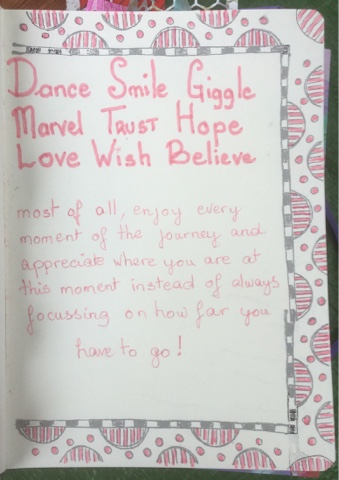 Dance Smile Giggle
Marvel TRUST Hope
Love Wish Believe
most of all, enjoy every
moment of the journey and
appreciate where you are at
this moment instead of always
focussing on how far you
have to go!